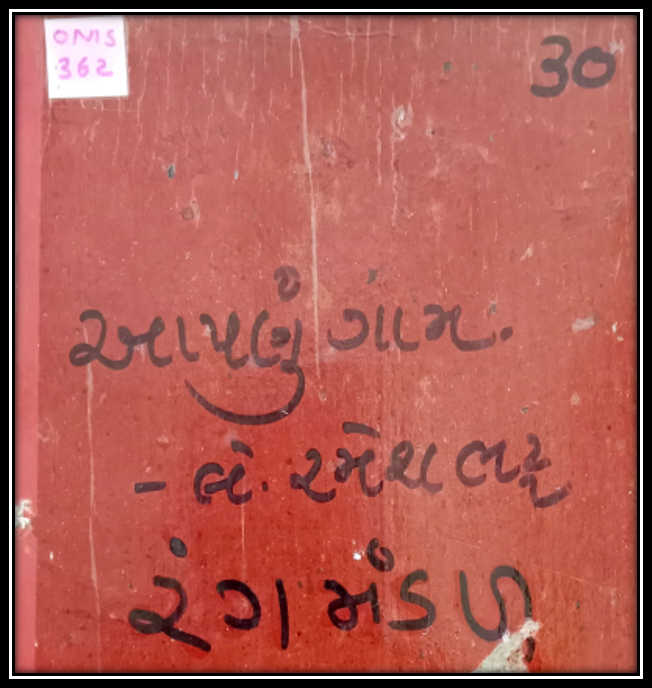 ONIS
362
30
આપણું ગામ.
- લે. રમેશ ભટ્ટ
રંગ મંડળ